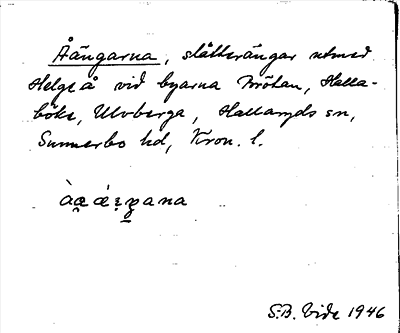 Åängarna, slåtterängar utmed
Helge å vid byarna Bröhan, Halla-
böke, Ulvberga, Hallaryds sn,
Sunnerbo hd, Kron. l.
S.B. Vide 1946